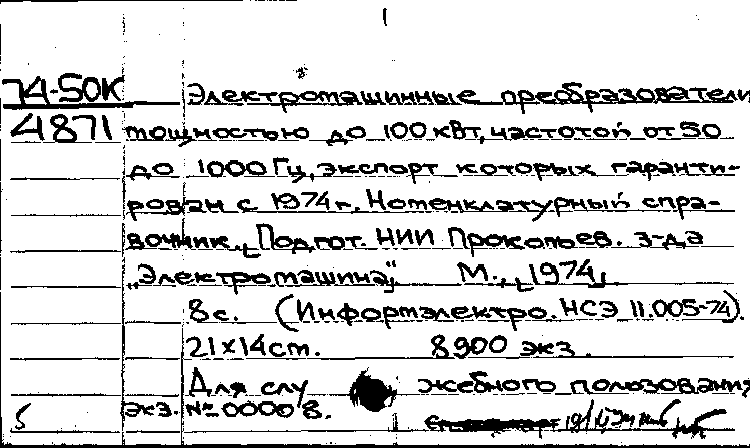 74-50К Электромашинные преобразователи
41871 мощностью до 100 квт, частотой от 50
до 1000 Гц, экспорт которых гаранти-
рован с 1974 г. Номенклатурный спра-
вочник. Подгот. НИИ Прокопьев. з-да
„Электромашина“ М., 1974.
8 с. (Информэлектро. НСЭ 11.005-74).
21×14 cm. 8900 экз.
Для слу жебного пользования
5 экз. №00008.